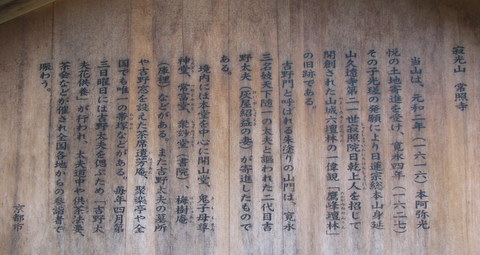 寂光山　常照寺
当山は、元和二年（一六一六）本阿弥光
悦の土地寄進を受け、寛永四年（一六二七）
その子光瑳の発願により日蓮宗総本山身延
山久遠寺第二一世寂照院日乾上人を招じて
開創された山城六檀林の一偉観「鷹峰檀林」
の旧跡である。
吉野門と呼ばれる朱塗りの山門は、寛永
三名妓天下随一の太夫と謳われた二代目吉
野太夫（灰屋紹益の妻）が寄進したもので
ある。
境内には本堂を中心に開山堂、鬼子母尊
神堂、常富堂、衆妙堂（書院）、梅樹庵
（庫裡）などがある。また吉野太夫の墓所
や吉野窓を設えた茶席遺芳庵、聚楽亭や全
国でも唯一の帯塚などがある。毎年四月第
三日曜日には吉野太夫を偲ぶため「吉野太
夫花供養」が行われ、太夫道中や供茶法要、
茶会などが催され全国各地からの参詣者で
賑わう。
京都市